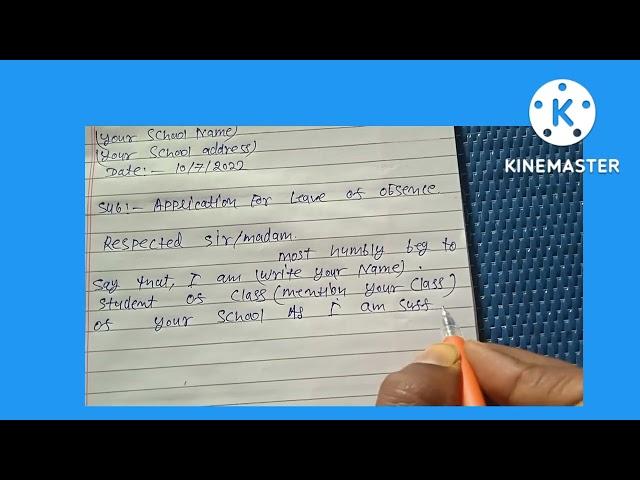 (Your School Name)
(Your School address)
Date:- 10/7/2022
Sub:- Application For Leave of obsence.
Respected sir/madam.
most humbly beg to
say that, I am (write your Name).
student of class (mention your class)
of your school As I am suff
K
KINEMASTER